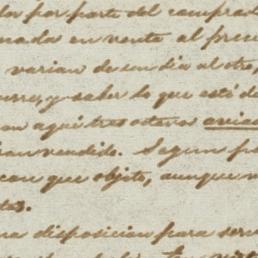 los por parte del comprad
nada en venta al preci
varian de un dia al otro,
urre, y saber lo que está d
on aqui tres octavos avisa
an vendido. Segun p
con que objeto, aunque n
tas.
na disposicion para serv